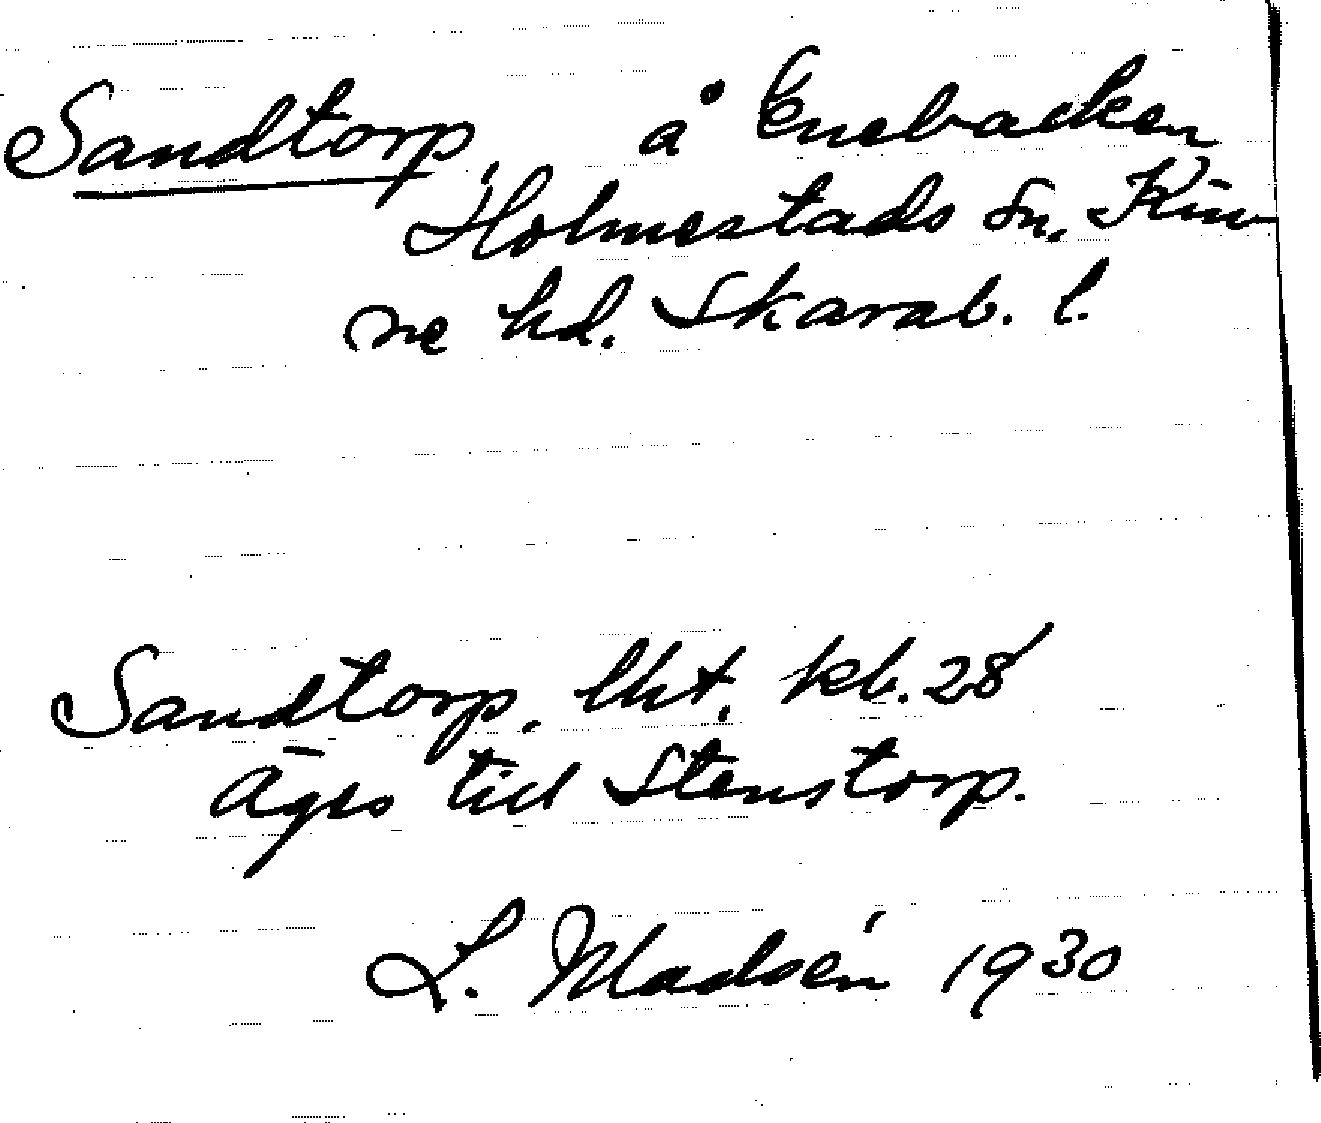 Sandtorp, å Enebacken
Holmestads sn, Kin-
ne hd. Skarab. l.
Sandtorp. lht. kb. 28
Äges till Stenstorp.
L. Madsén 1930